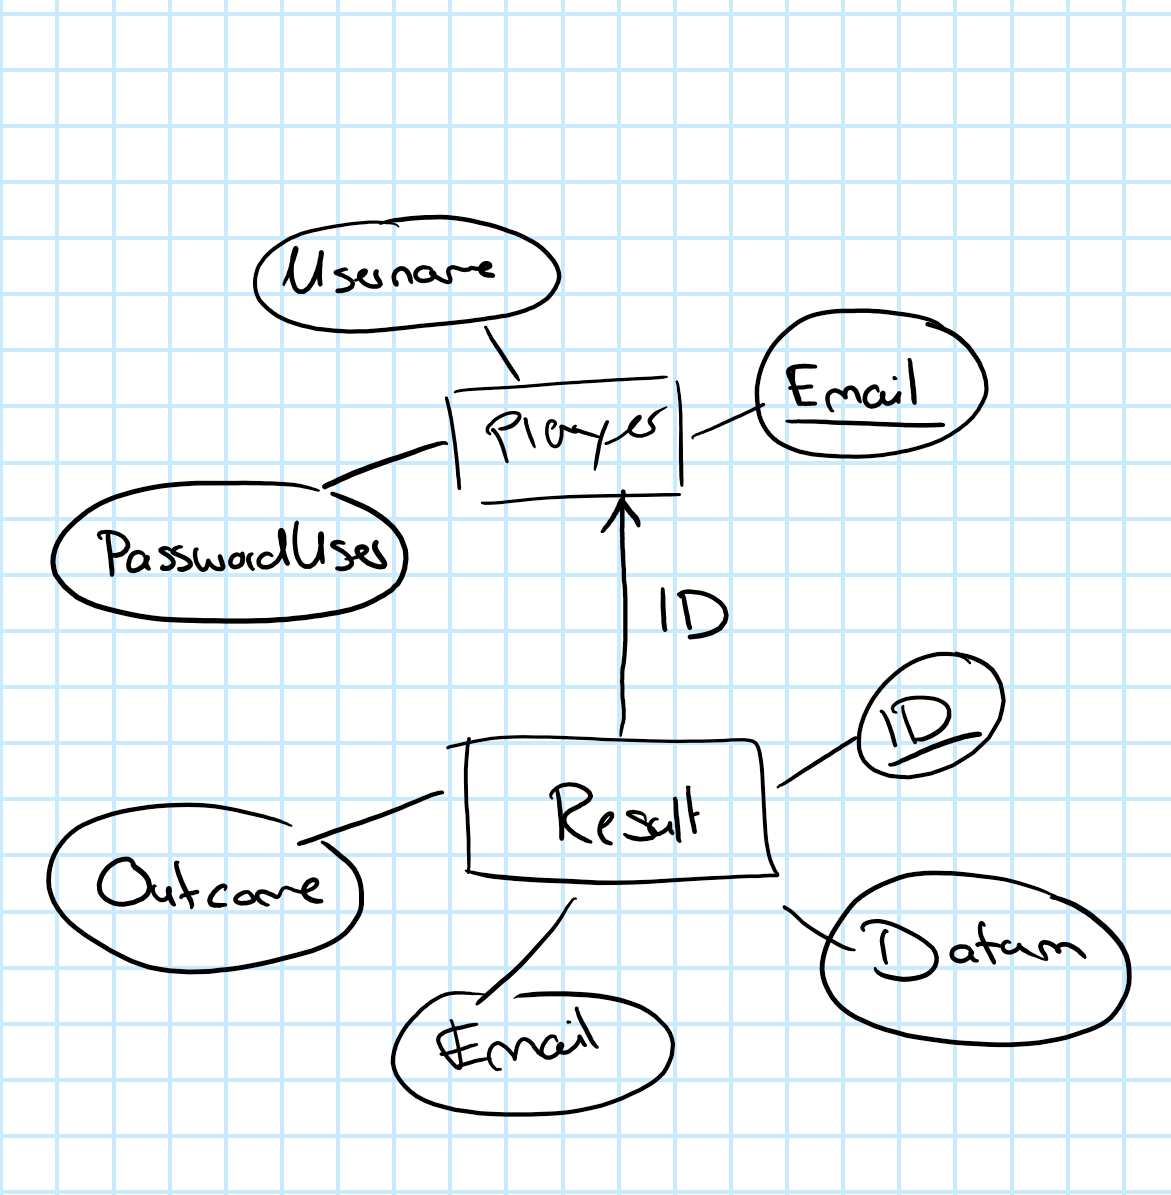 Username
Email
Player
PasswordUser
ID
ID
Result
Outcome
Datum
Email